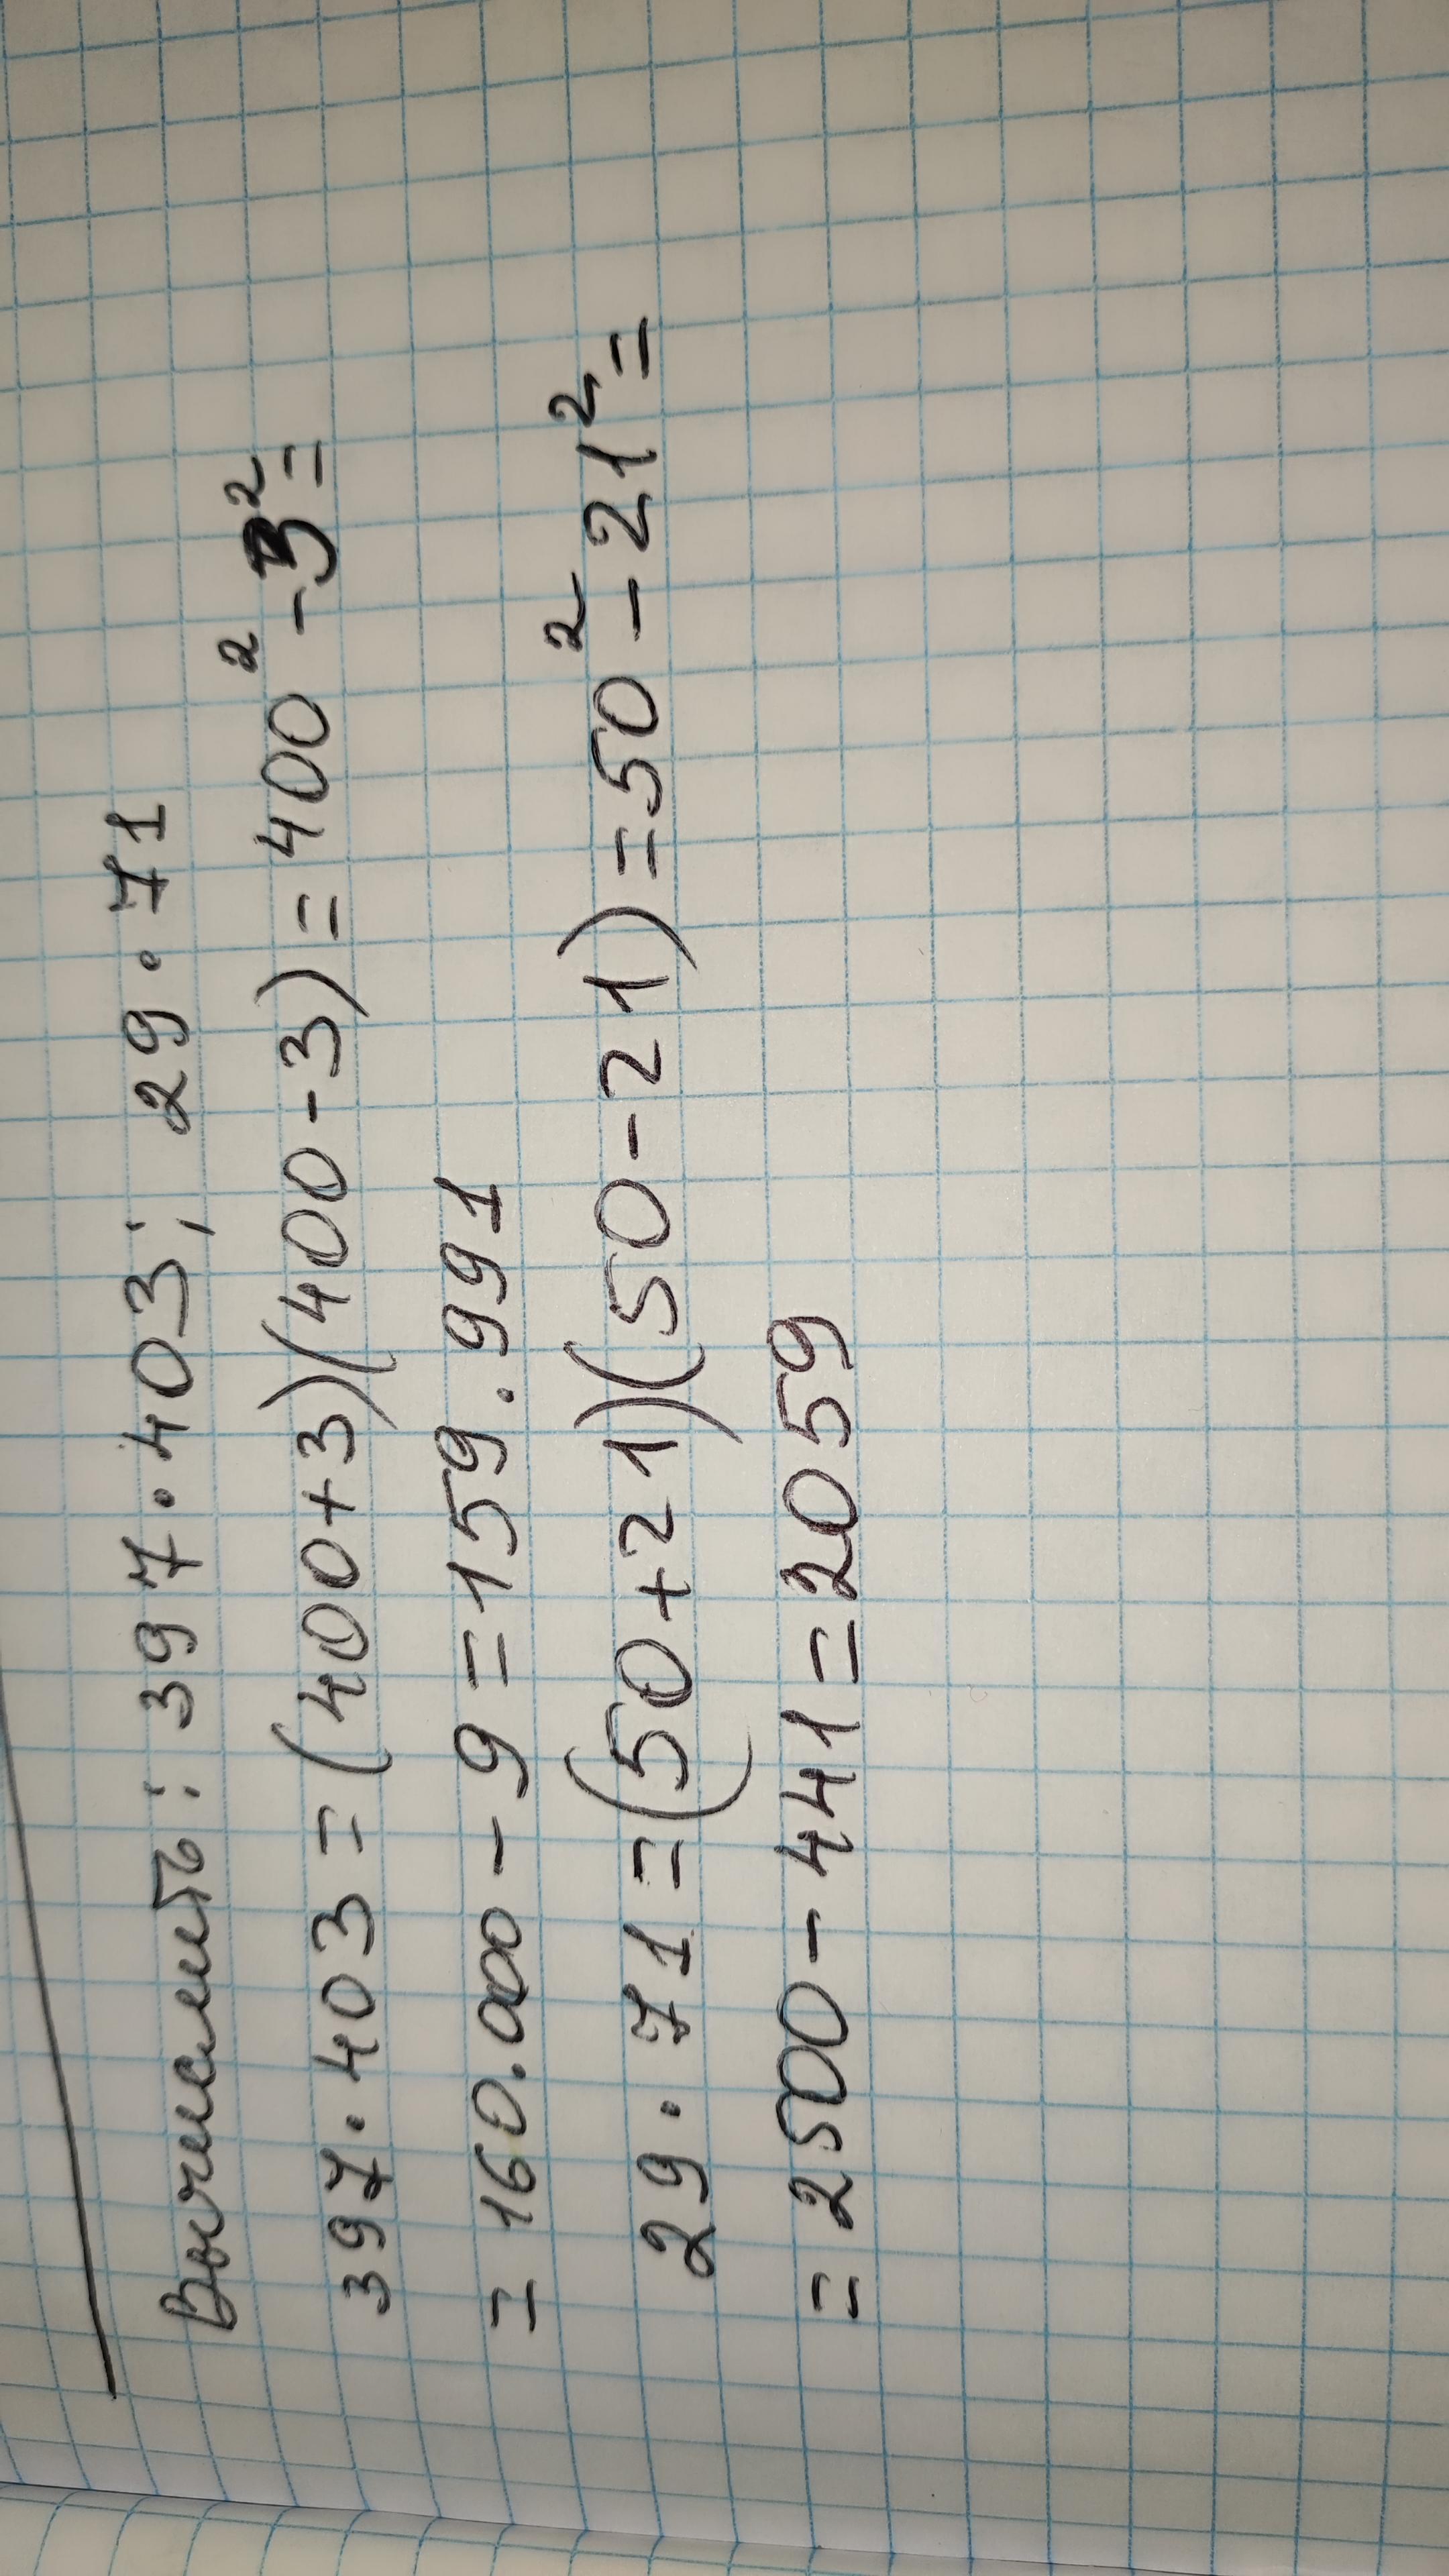 Вычислить: 397·403; 29·71
397·403=(400+3)(400-3)=400²-3²=
=160.000-9=159.991
29·71=(50+21)(50-21)=50²-21²=
=2500-441=2059